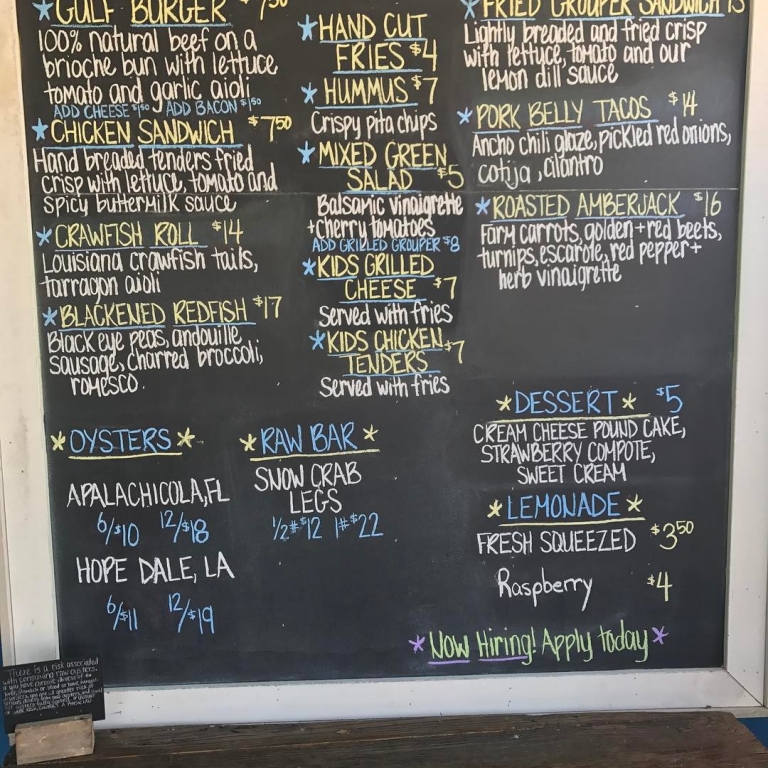 GULF BURGER $7.50
100% natural beef on a
brioche bun with lettuce
tomato and garlic aioli
ADD CHEESE $1.50 ADD BACON $1.50
CHICKEN SANDWICH $7.50
Hand breaded tenders fried
crisp with lettuce, tomato and
spicy buttermilk sauce
CRAWFISH ROLL $14
Louisiana crawfish tails,
tarragon aioli
BLACKENED REDFISH $17
Black eye peas, andouille
sausage, charred broccoli,
romesco.
HAND CUT
FRIES $4
HUMMUS $7
Crispy pita chips
MIXED GREEN
SALAD $5
Balsamic vinaigrette
+ cherry tomatoes
ADD GRILLED GROUPER $8
KIDS GRILLED
CHEESE $7
Served with fries
KIDS CHICKEN
TENDERS $7
Served with fries
FRIED GROUPER SANDWICH 15
Lightly breaded and fried crisp
with lettuce, tomato and our
lemon dill sauce
PORK BELLY TACOS $14
Ancho chili glaze, pickled red onions,
cotija, cilantro
ROASTED AMBERJACK $16
Farm carrots, golden + red beets,
turnips, escarole, red pepper +
herb vinaigrette
OYSTERS
APALACHICOLA, FL
6/$10 12/$18
HOPE DALE, LA
6/$11 12/$19
RAW BAR
SNOW CRAB
LEGS
1/2# $12 1# $22
DESSERT $5
CREAM CHEESE POUND CAKE,
STRAWBERRY COMPOTE,
SWEET CREAM
LEMONADE
FRESH SQUEEZED $3.50
Raspberry $4
Now Hiring! Apply today
There is a risk associated
with consuming raw oysters.